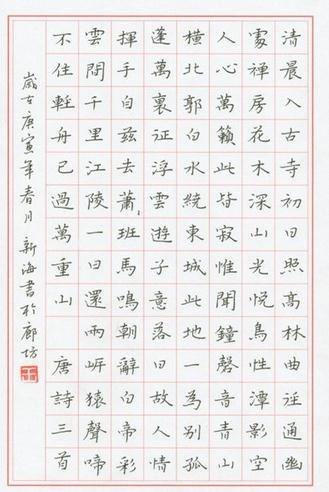 清晨入古寺初日照高林曲迳通幽
處禪房花木深山光悅鳥性潭影空
人心萬籟此皆寂惟聞鐘磬音青山
橫北郭白水繞東城此地一為別孤
蓬萬裏征浮雲遊子意落日故人情
揮手自兹去蕭〻班馬鳴朝辭白帝彩
雲間千里江陵一日還兩岸猿聲啼
不住輕舟已過萬重山 唐詩三首
歲在庚寅年春月新海書於廊坊